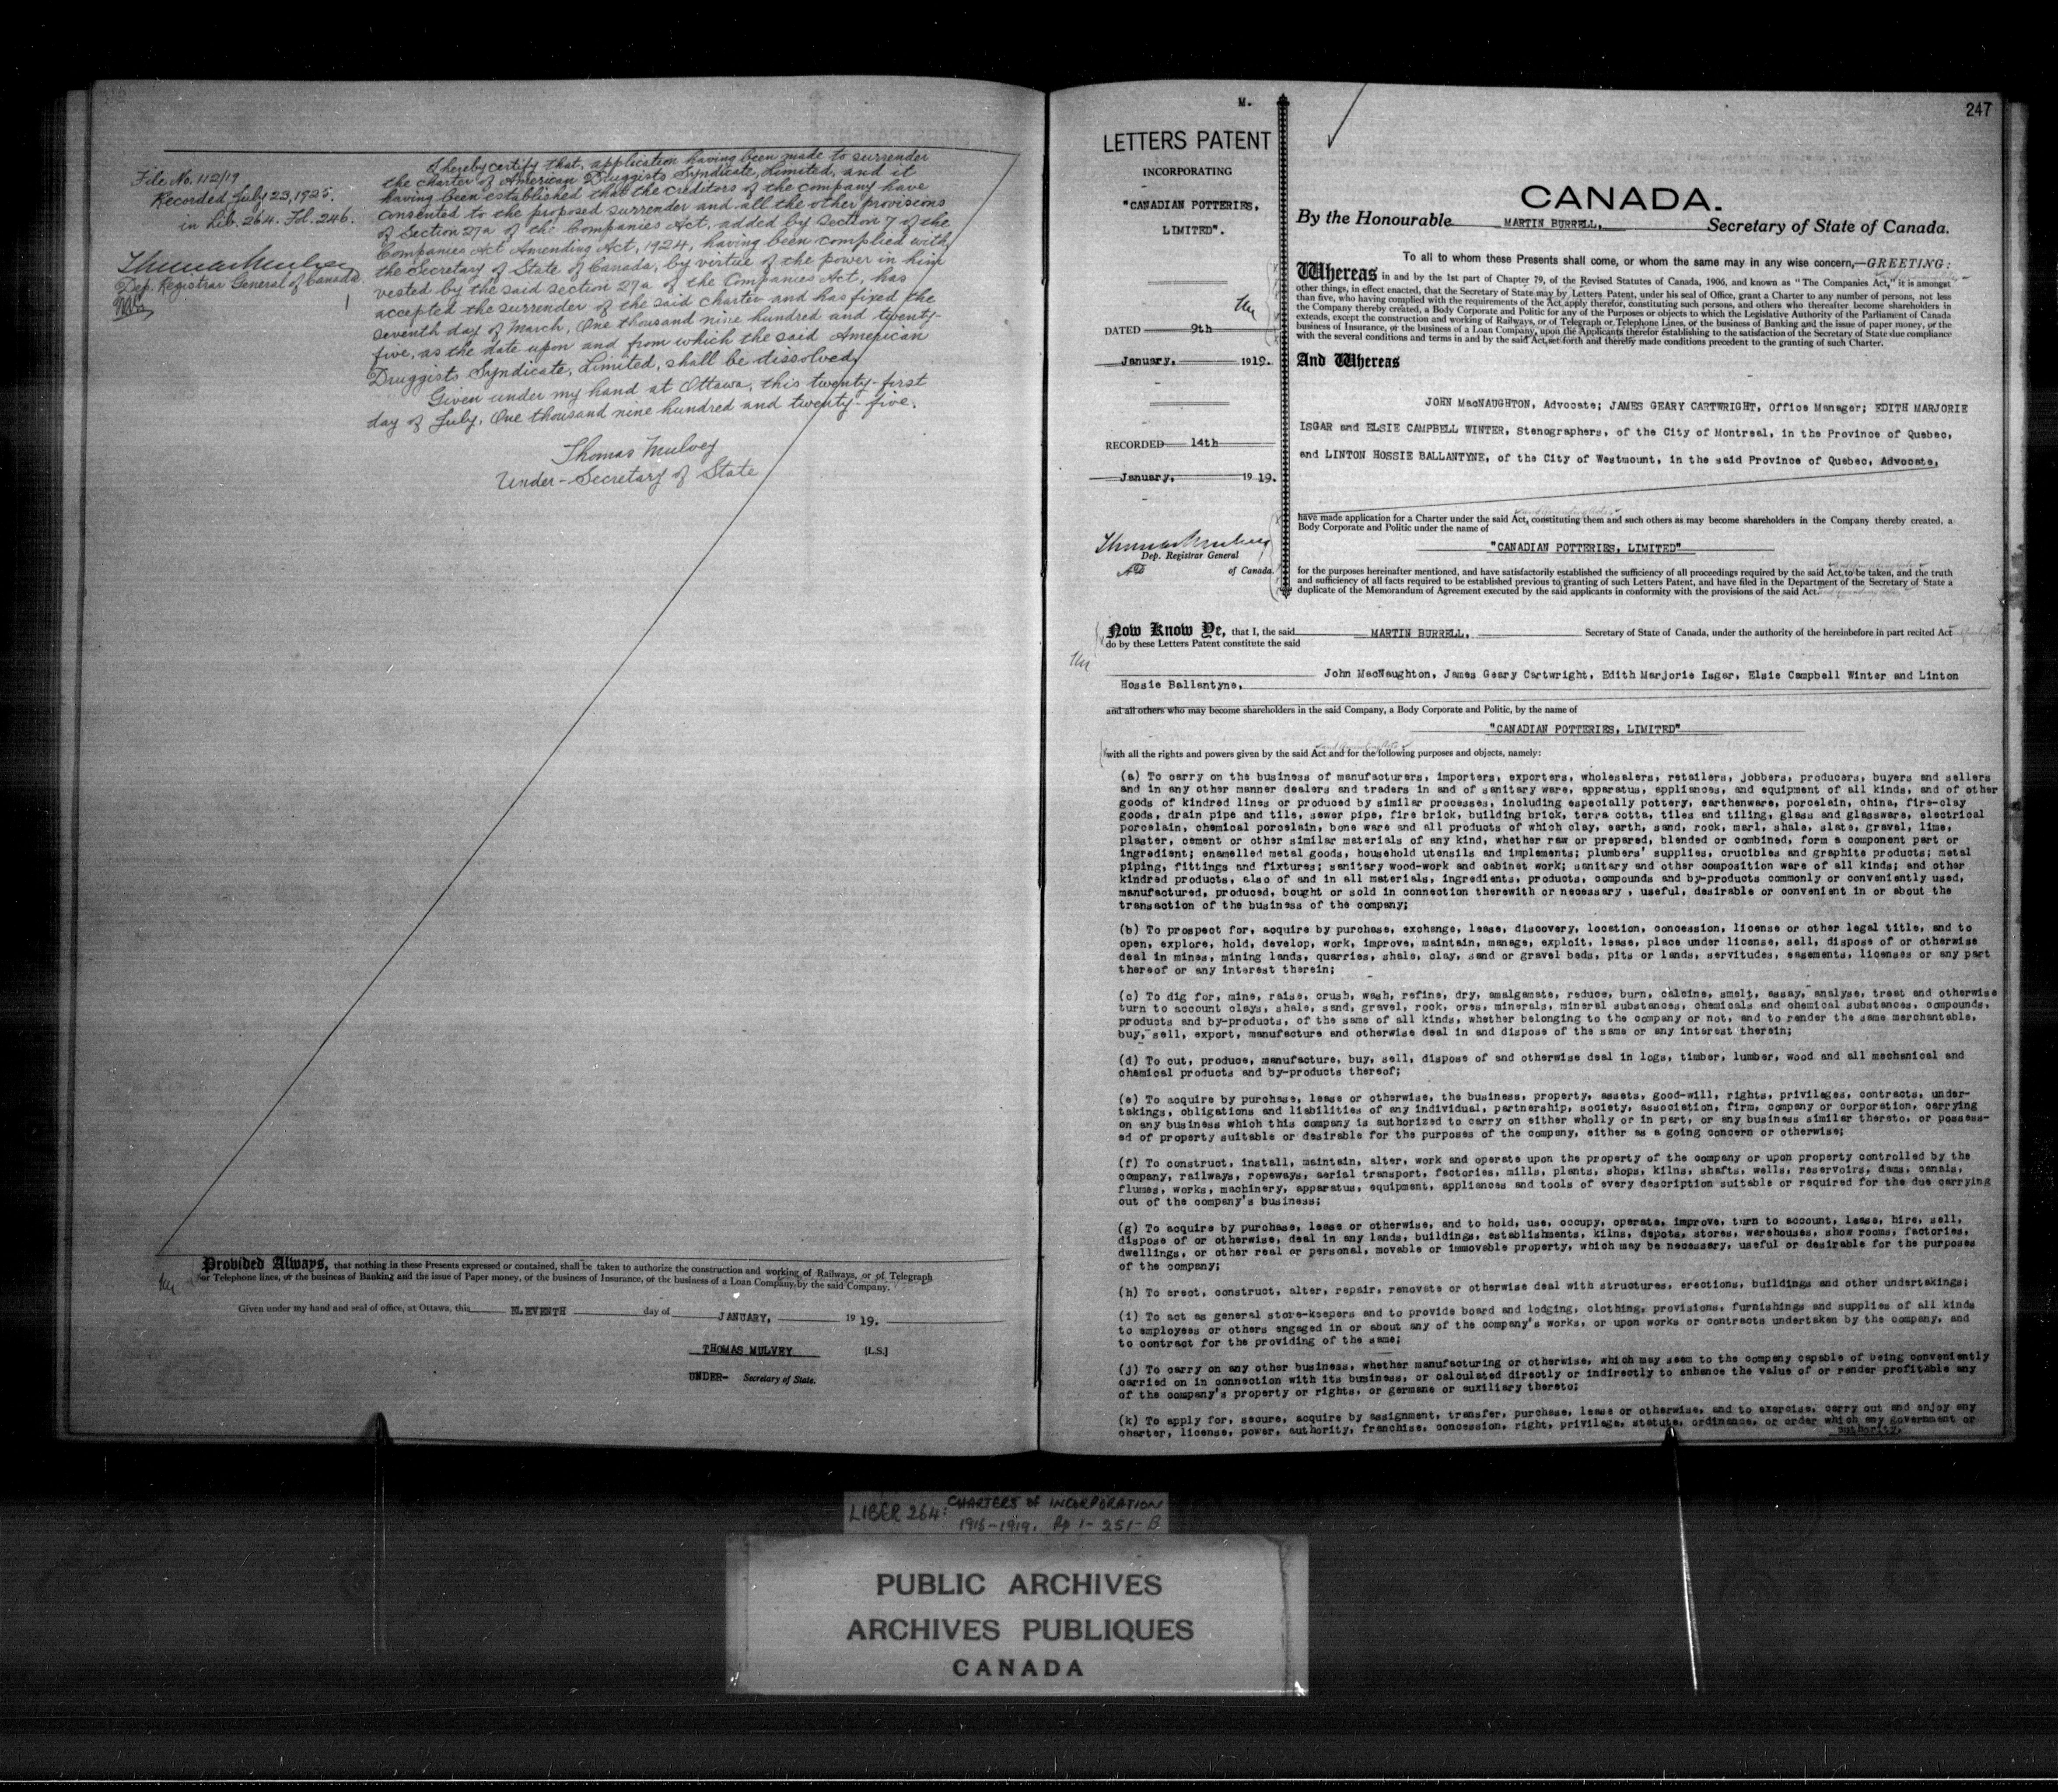 File No. 112/19
Recorded July 23, 1925.
in Lib. 264. Fol. 246.
Thomas Mulvey
Dep. Registrar General of Canada.
I hereby certify that, application having been made to surrender
the charter of American Druggists Syndicate, Limited, and it
having been established that the creditors of the company have
consented to the proposed surrender and all the other provisions
of Section 27a of the Companies Act, added by Section 7 of the
Companies Act Amending Act, 1924, having been complied with,
the Secretary of State of Canada, by virtue of the power in him
vested by the said section 27a of the Companies Act, has
accepted the surrender of the said charter and has fixed the
seventh day of March, One thousand nine hundred and twenty-
five, as the date upon and from which the said American
Druggists Syndicate, Limited, shall be dissolved.
Given under my hand at Ottawa, this twenty-first
day of July, One thousand nine hundred and twenty-five.
Thomas Mulvey
Under-Secretary of State
Provided Always, that nothing in these Presents expressed or contained, shall be taken to authorize the construction and working of Railways, or of Telegraph
or Telephone lines, or the business of Banking and the issue of Paper money, or the business of Insurance, or the business of a Loan Company by the said Company.
Given under my hand and seal of office, at Ottawa, this ELEVENTH day of JANUARY, 19 19.
THOMAS MULVEY [L.S.]
UNDER- Secretary of State.
247
M.
LETTERS PATENT
INCORPORATING
"CANADIAN POTTERIES,
LIMITED".
DATED 9th
January, 1919.
RECORDED 14th
January, 19 19.
Thomas Mulvey
Dep. Registrar General
of Canada.
CANADA.
By the Honourable MARTIN BURRELL, Secretary of State of Canada.
To all to whom these Presents shall come, or whom the same may in any wise concern,—GREETING:
Whereas in and by the 1st part of Chapter 79, of the Revised Statutes of Canada, 1906, and known as "The Companies Act," it is amongst
other things, in effect enacted, that the Secretary of State may by Letters Patent, under his seal of Office, grant a Charter to any number of persons, not less
than five, who having complied with the requirements of the Act apply therefor, constituting such persons, and others who thereafter become shareholders in
the Company thereby created, a Body Corporate and Politic for any of the Purposes or objects to which the Legislative Authority of the Parliament of Canada
extends, except the construction and working of Railways, or of Telegraph or Telephone Lines, or the business of Banking and the issue of paper money, or the
business of Insurance, or the business of a Loan Company, upon the Applicants therefor establishing to the satisfaction of the Secretary of State due compliance
with the several conditions and terms in and by the said Act, set forth and thereby made conditions precedent to the granting of such Charter.
And Whereas
JOHN MacNAUGHTON, Advocate; JAMES GEARY CARTWRIGHT, Office Manager; EDITH MARJORIE
ISGAR and ELSIE CAMPBELL WINTER, Stenographers, of the City of Montreal, in the Province of Quebec,
and LINTON HOSSIE BALLANTYNE, of the City of Westmount, in the said Province of Quebec, Advocate,
have made application for a Charter under the said Act, constituting them and such others as may become shareholders in the Company thereby created, a
Body Corporate and Politic under the name of
"CANADIAN POTTERIES, LIMITED"
for the purposes hereinafter mentioned, and have satisfactorily established the sufficiency of all proceedings required by the said Act, to be taken, and the truth
and sufficiency of all facts required to be established previous to granting of such Letters Patent, and have filed in the Department of the Secretary of State a
duplicate of the Memorandum of Agreement executed by the said applicants in conformity with the provisions of the said Act.
Now Know Ye, that I, the said MARTIN BURRELL, Secretary of State of Canada, under the authority of the hereinbefore in part recited Act
do by these Letters Patent constitute the said
John MacNaughton, James Geary Cartwright, Edith Marjorie Isgar, Elsie Campbell Winter and Linton
Hossie Ballantyne,
and all others who may become shareholders in the said Company, a Body Corporate and Politic, by the name of
"CANADIAN POTTERIES, LIMITED"
with all the rights and powers given by the said Act and for the following purposes and objects, namely:
(a) To carry on the business of manufacturers, importers, exporters, wholesalers, retailers, jobbers, producers, buyers and sellers
and in any other manner dealers and traders in and of sanitary ware, apparatus, appliances, and equipment of all kinds, and of other
goods of kindred lines or produced by similar processes, including especially pottery, earthenware, porcelain, china, fire-clay
goods, drain pipe and tile, sewer pipe, fire brick, building brick, terra cotta, tiles and tiling, glass and glassware, electrical
porcelain, chemical porcelain, bone ware and all products of which clay, earth, sand, rock, marl, shale, slate, gravel, lime,
plaster, cement or other similar materials of any kind, whether raw or prepared, blended or combined, form a component part or
ingredient; enamelled metal goods, household utensils and implements; plumbers' supplies, crucibles and graphite products; metal
piping, fittings and fixtures; sanitary wood-work and cabinet work; sanitary and other composition ware of all kinds; and other
kindred products, also of and in all materials, ingredients, products, compounds and by-products commonly or conveniently used,
manufactured, produced, bought or sold in connection therewith or necessary , useful, desirable or convenient in or about the
transaction of the business of the company;
(b) To prospect for, acquire by purchase, exchange, lease, discovery, location, concession, license or other legal title, and to
open, explore, hold, develop, work, improve, maintain, manage, exploit, lease, place under license, sell, dispose of or otherwise
deal in mines, mining lands, quarries, shale, clay, sand or gravel beds, pits or lands, servitudes, easements, licenses or any part
thereof or any interest therein;
(c) To dig for, mine, raise, crush, wash, refine, dry, amalgamate, reduce, burn, calcine, smelt, assay, analyse, treat and otherwise
turn to account clays, shale, sand, gravel, rock, ores, minerals, mineral substances, chemicals and chemical substances, compounds,
products and by-products, of the same of all kinds, whether belonging to the company or not, and to render the same merchantable,
buy, sell, export, manufacture and otherwise deal in and dispose of the same or any interest therein;
(d) To cut, produce, manufacture, buy, sell, dispose of and otherwise deal in logs, timber, lumber, wood and all mechanical and
chemical products and by-products thereof;
(e) To acquire by purchase, lease or otherwise, the business, property, assets, good-will, rights, privileges, contracts, under-
takings, obligations and liabilities of any individual, partnership, society, association, firm, company or corporation, carrying
on any business which this company is authorized to carry on either wholly or in part, or any business similar thereto, or possess-
ed of property suitable or desirable for the purposes of the company, either as a going concern or otherwise;
(f) To construct, install, maintain, alter, work and operate upon the property of the company or upon property controlled by the
company, railways, ropeways, aerial transport, factories, mills, plants, shops, kilns, shafts, wells, reservoirs, dams, canals,
flumes, works, machinery, apparatus, equipment, appliances and tools of every description suitable or required for the due carrying
out of the company's business;
(g) To acquire by purchase, lease or otherwise, and to hold, use, occupy, operate, improve, turn to account, lease, hire, sell,
dispose of or otherwise, deal in any lands, buildings, establishments, kilns, depots, stores, warehouses, show rooms, factories,
dwellings, or other real or personal, movable or immovable property, which may be necessary, useful or desirable for the purposes
of the company;
(h) To erect, construct, alter, repair, renovate or otherwise deal with structures, erections, buildings and other undertakings;
(i) To act as general store-keepers and to provide board and lodging, clothing, provisions, furnishings and supplies of all kinds
to employees or others engaged in or about any of the company's works, or upon works or contracts undertaken by the company, and
to contract for the providing of the same;
(j) To carry on any other business, whether manufacturing or otherwise, which may seem to the company capable of being conveniently
carried on in connection with its business, or calculated directly or indirectly to enhance the value of or render profitable any
of the company's property or rights, or germane or auxiliary thereto;
(k) To apply for, secure, acquire by assignment, transfer, purchase, lease or otherwise, and to exercise, carry out and enjoy any
charter, license, power, authority, franchise, concession, right, privilege, statute, ordinance, or order which any government or
authority,
LIBER 264: CHARTERS of INCORPORATION
1916-1919. Pp 1- 251-B
PUBLIC ARCHIVES
ARCHIVES PUBLIQUES
CANADA